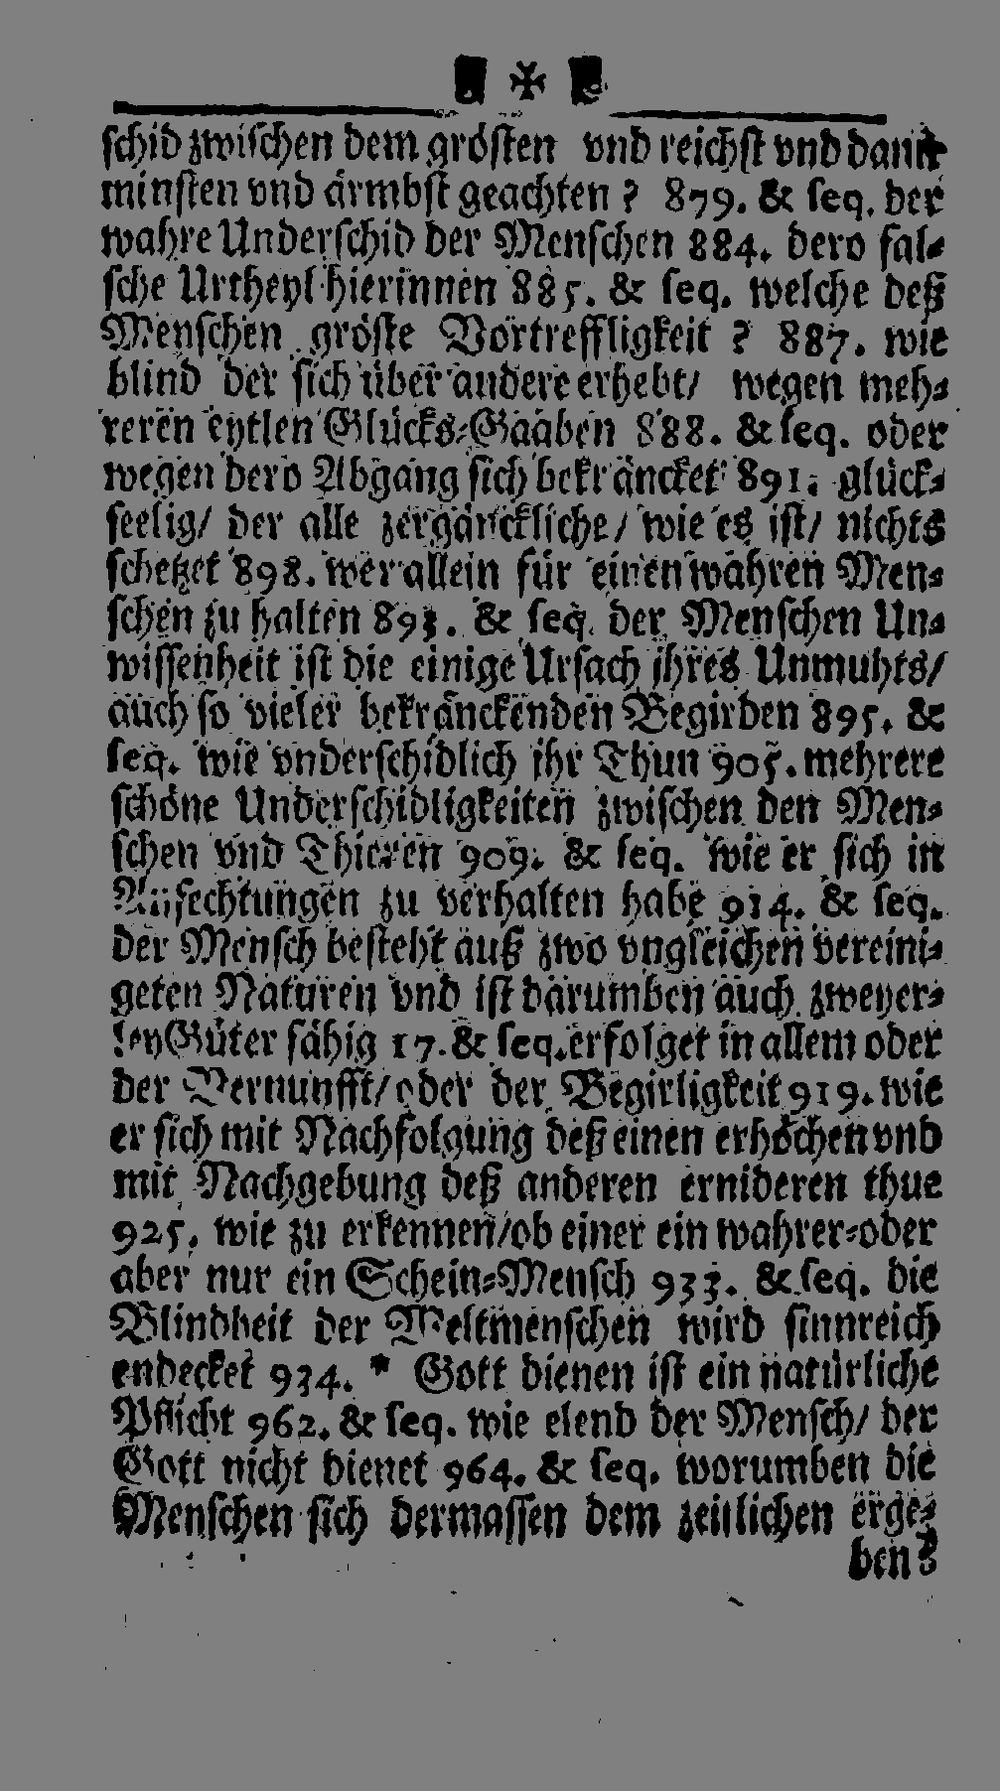 schid zwischen dem grösten vnd reichst vnd dann
minsten vnd ärmbst geachten ? 879. & seq. der
wahre Underschid der Menschen 884. dero fal⸗
sche Urtheyl hierinnen 885. & seq. welche deß
Menschen gröste Vortreffligkeit ? 887. wie
blind der sich über andere erhebt/ wegen meh⸗
reren eytlen Glücks⸗Gaaben 888. & seq. oder
wegen dero Abgang sich bekräncket 891. glück⸗
seelig/ der alle zergänckliche/ wie es ist/ nichts
schetzet 898. wer allein für einen wahren Men⸗
schen zu halten 893. & seq. der Menschen Un⸗
wissenheit ist die einige Ursach ihres Unmuhts/
auch so vieler bekränckenden Begirden 895. &
seq. wie vnderschidlich ihr Thun 905. mehrere
schöne Underschidligkeiten zwischen den Men⸗
schen vnd Thieren 909. & seq. wie er sich in
Anfechtungen zu verhalten habe 914. & seq.
der Mensch besteht auß zwo vngleichen vereini⸗
geten Naturen vnd ist darumben auch zweyer⸗
ley Güter fähig 17. & seq. erfolget in allem oder
der Vernunfft/ oder der Begirligkeit 919. wie
er sich mit Nachfolgung deß einen erhöchen vnd
mit Nachgebung deß anderenernideren thue
925. wie zu erkennen/ ob einer ein wahrer⸗oder
aber nur ein Schein⸗Mensch 933. & seq. die
Blindheit der Weltmenschen wird sinnreich
endecket 934. * Gott dienen ist ein natürliche
Pflicht 962. & seq. wie elend der Mensch/ der
Gott nicht dienet 964. & seq. worumben die
Menschen sich dermassen dem zeitlichen erge⸗
ben?